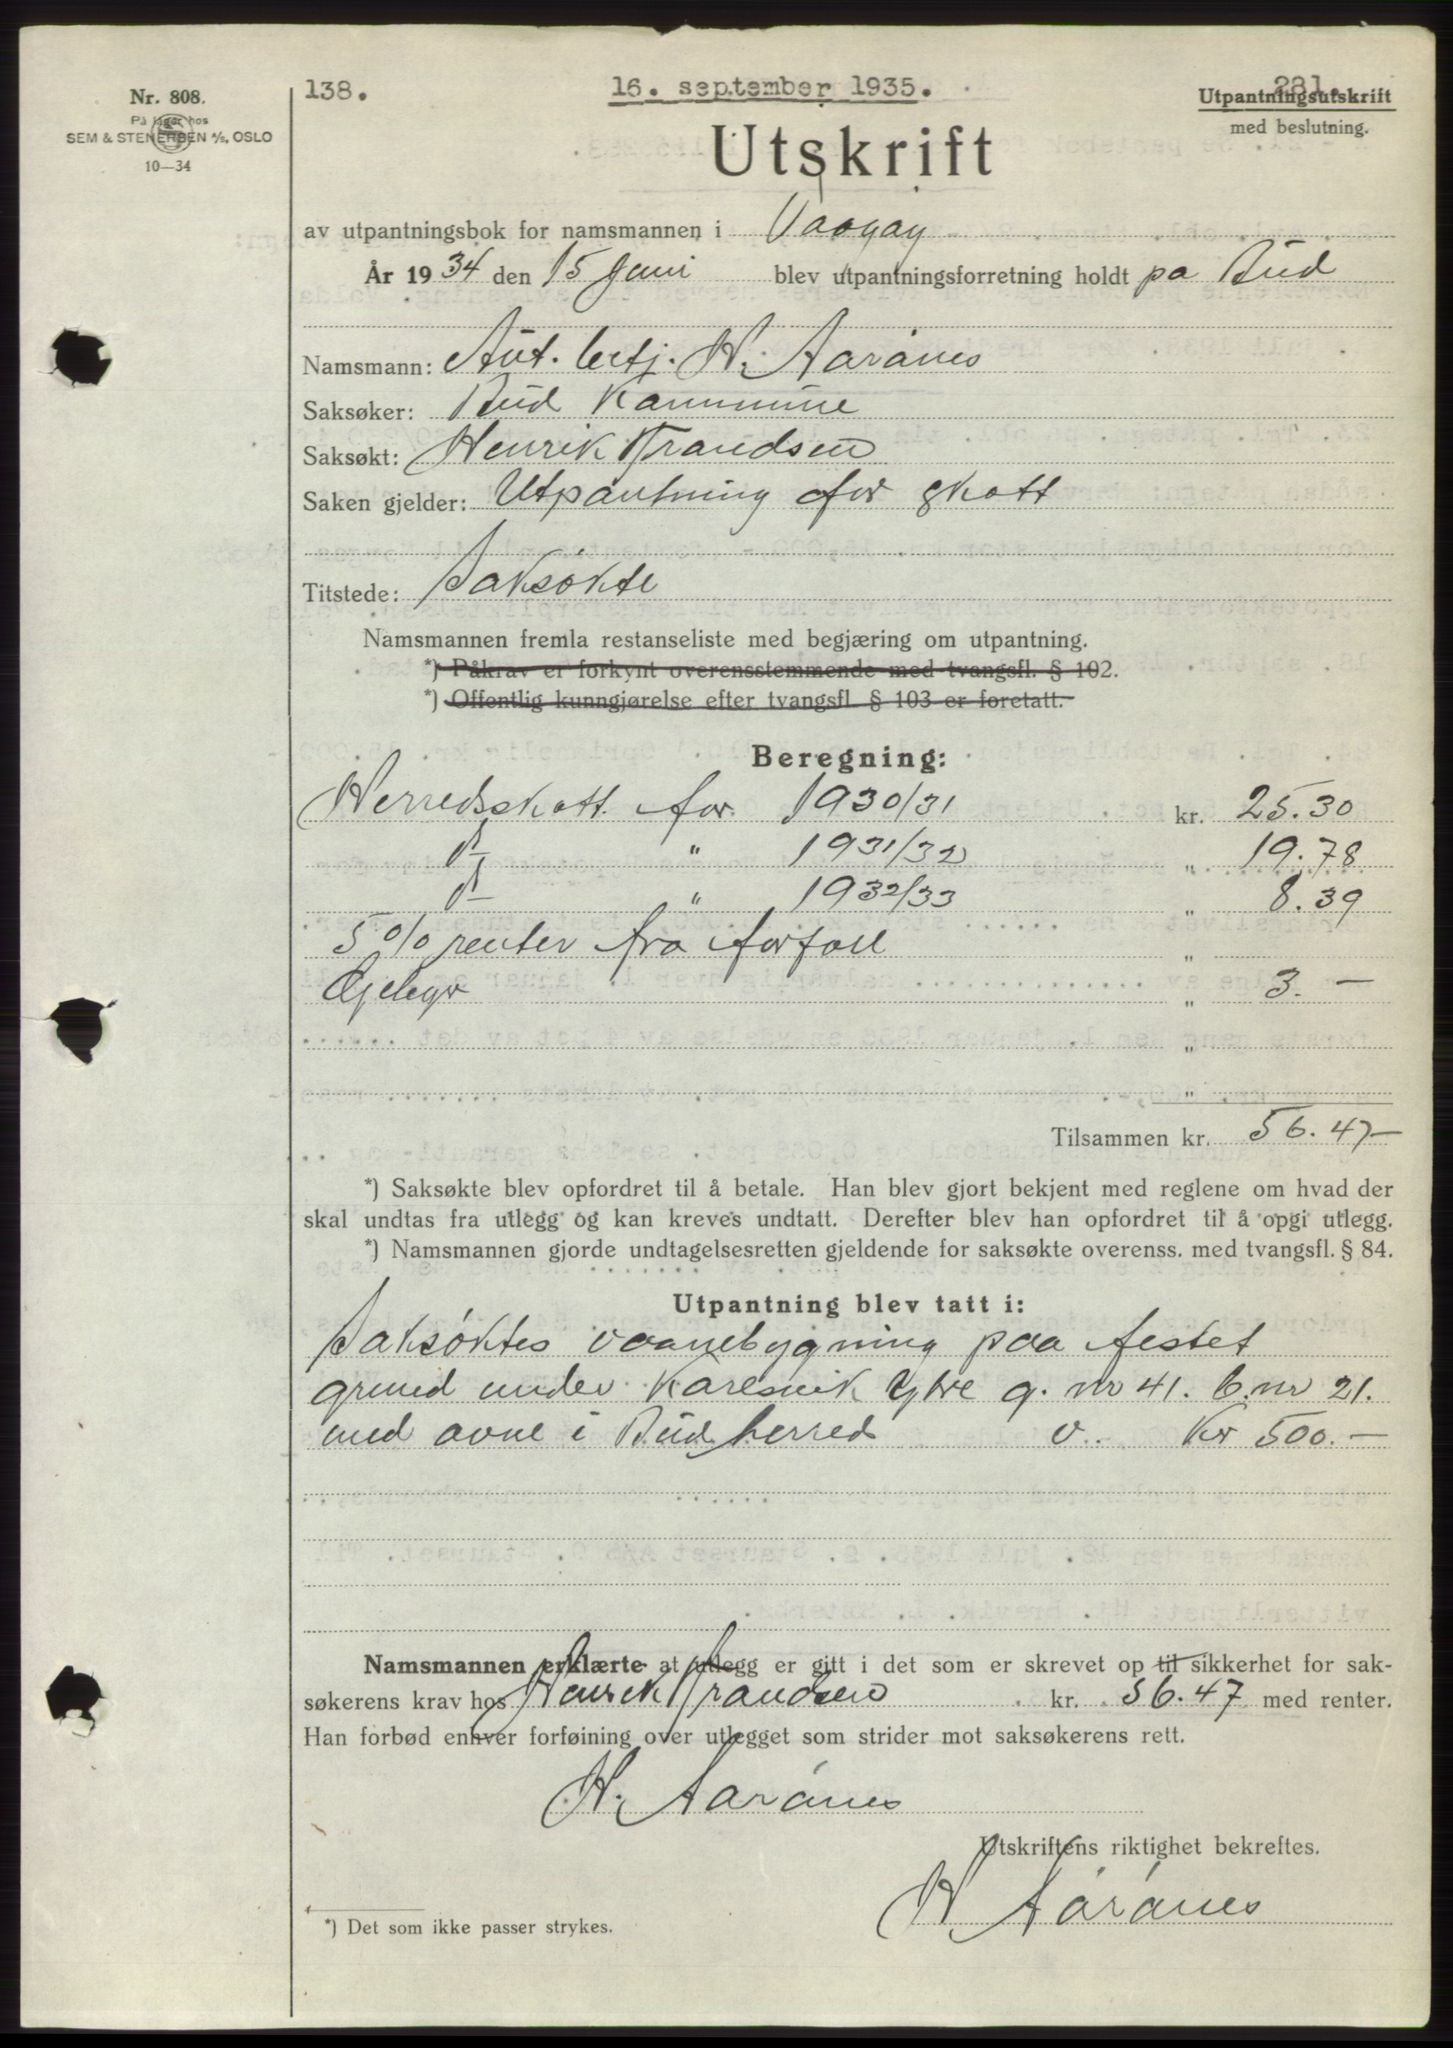 138.
16. september 1935.
281.
Nr. 808.
På lager hos
SEM & STENERSEN A/S, OSLO
10—34
Utpantningsutskrift
med beslutning.
Utskrift
av utpantningsbok for namsmannen i
År 1934 den 15 juni blev utpantningsforretning holdt på Bud
Namsmann: Aut. betj. H. Aarönes
Saksøker: Bud Kommune
Saksøkt: Henrik Frandsen
Saken gjelder: Utpantning for skatt
Titstede: Saksökte
Namsmannen fremla restanseliste med begjæring om utpantning.
*) Påkrav er forkynt overensstemmende med tvangsfl. § 102.
*) Offentlig kunngjørelse efter tvangsfl. § 103 er foretatt.
Beregning:
Herredsskatt for 1930/31 kr. 25.30
" 1931/32 " 19.78
" 1932/33 " 8.39
5 % renter fra forfall "
Gebyr " 3.—
"
"
Tilsammen kr. 56.47—
*) Saksøkte blev opfordret til å betale. Han blev gjort bekjent med reglene om hvad der
skal undtas fra utlegg og kan kreves undtatt. Derefter blev han opfordret til å opgi utlegg.
*) Namsmannen gjorde undtagelsesretten gjeldende for saksøkte overenss. med tvangsfl. § 84.
Utpantning blev tatt i:
Saksöktes vaanebygning paa festet
grund under Karesvik Ytre g. nr 41. b. nr 21.
med ovne i Bud herred v. Kr 500.—
Namsmannen erklærte at utlegg er gitt i det som er skrevet op til sikkerhet for sak-
søkerens krav hos Henrik Frandsen kr. 56.47 med renter.
Han forbød enhver forføining over utlegget som strider mot saksøkerens rett.
H. Aarönes
Utskriftens riktighet bekreftes.
H Aarönes
*) Det som ikke passer strykes.